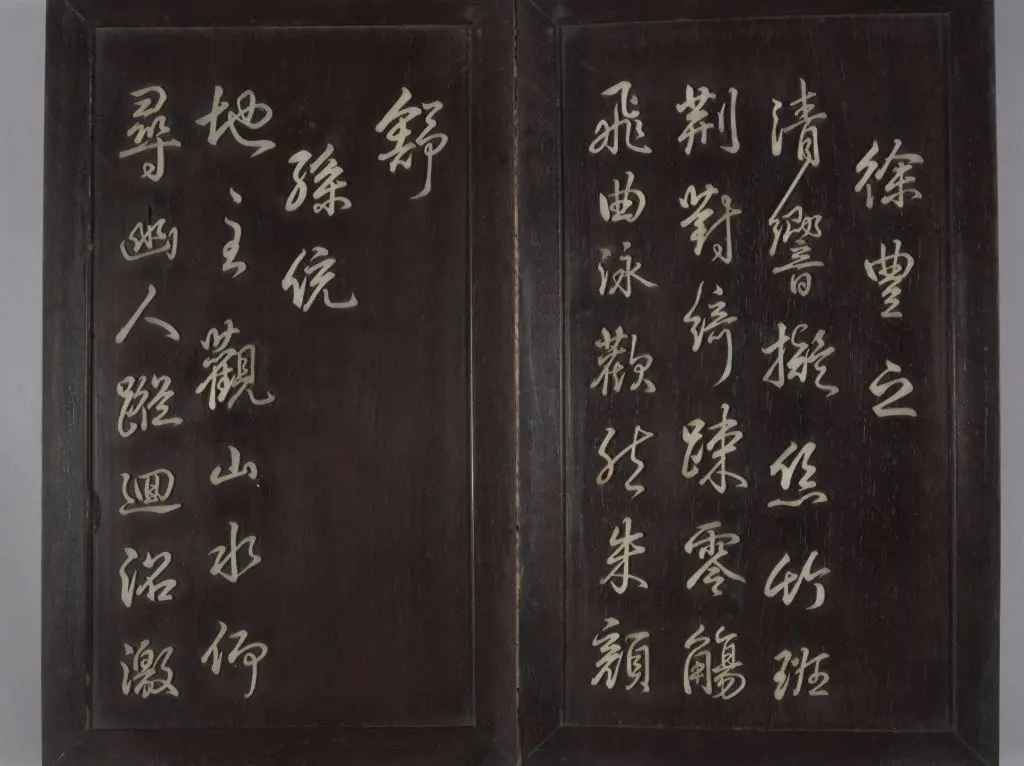 徐豐之
清響擬絲竹班
荆對綺疎零觴
飛曲泳歡然朱顔
舒
孫統
地主觀山水仰
尋幽人蹤迴沼激